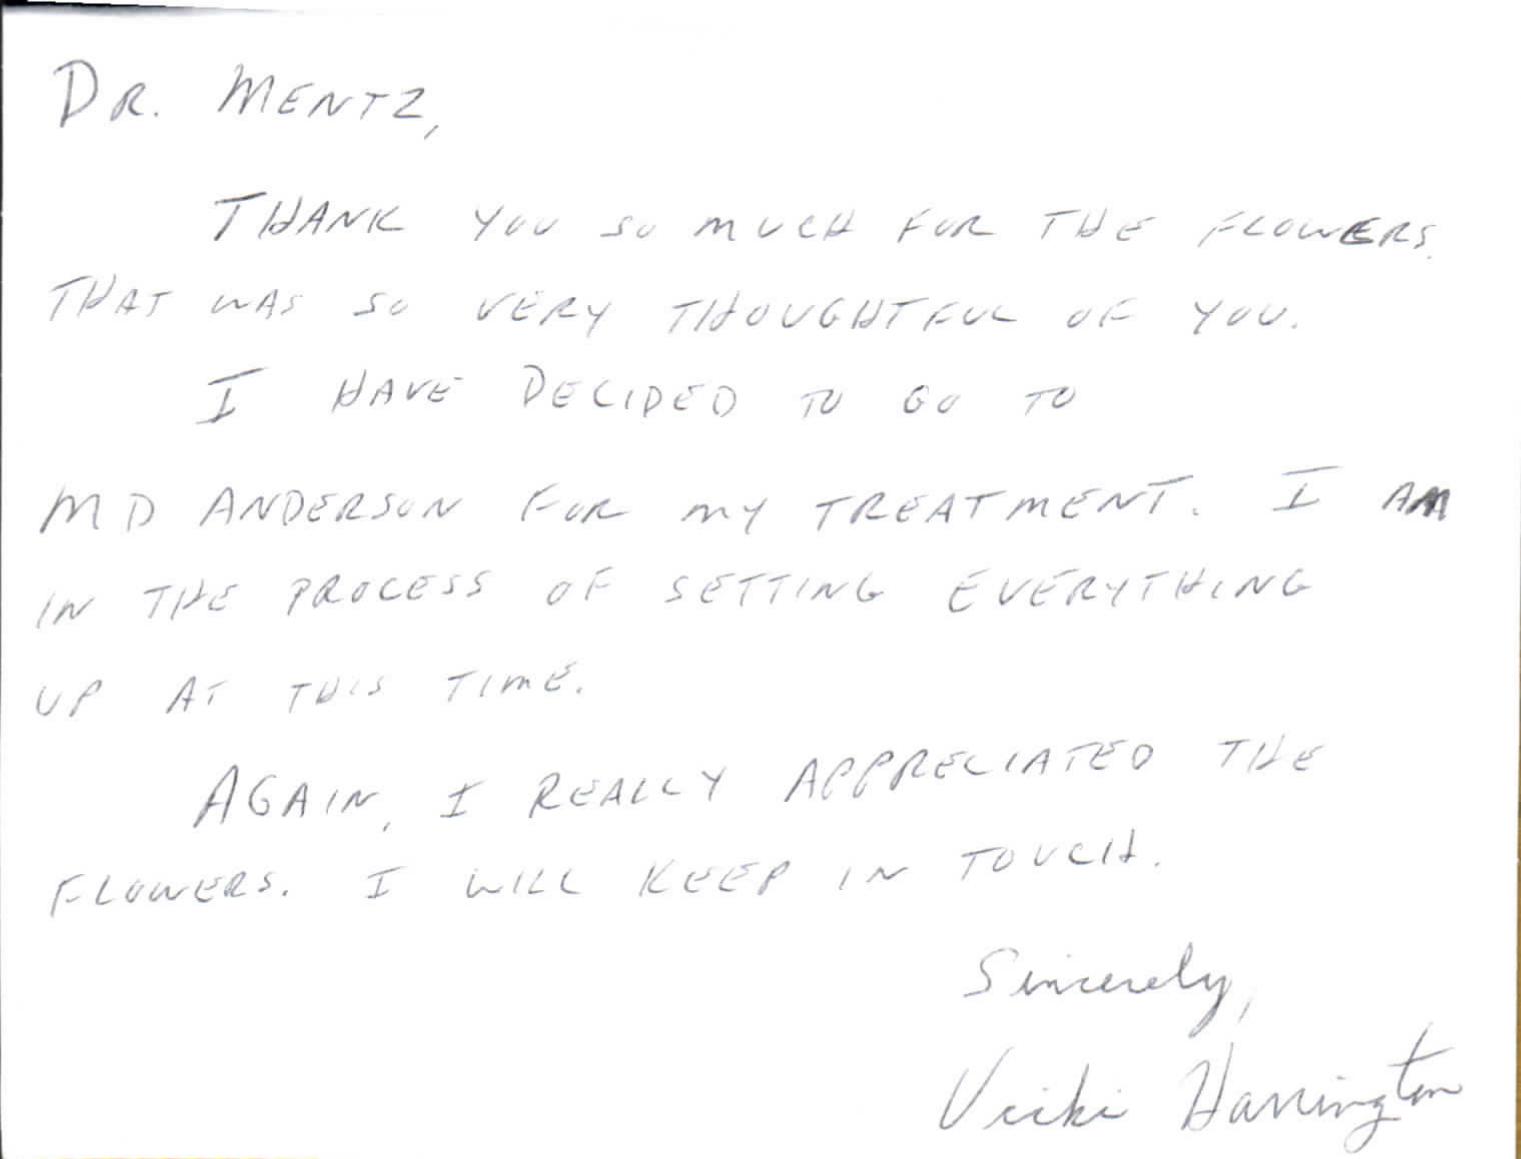 DR. MENTZ,
THANK YOU SO MUCH FOR THE FLOWERS.
THAT WAS SO VERY THOUGHTFUL OF YOU.
I HAVE DECIDED TO GO TO
MD ANDERSON FOR MY TREATMENT. I AM
IN THE PROCESS OF SETTING EVERYTHING
UP AT THIS TIME.
AGAIN, I REALLY APPRECIATED THE
FLOWERS. I WILL KEEP IN TOUCH.
Sincerely,
Vicki Harrington